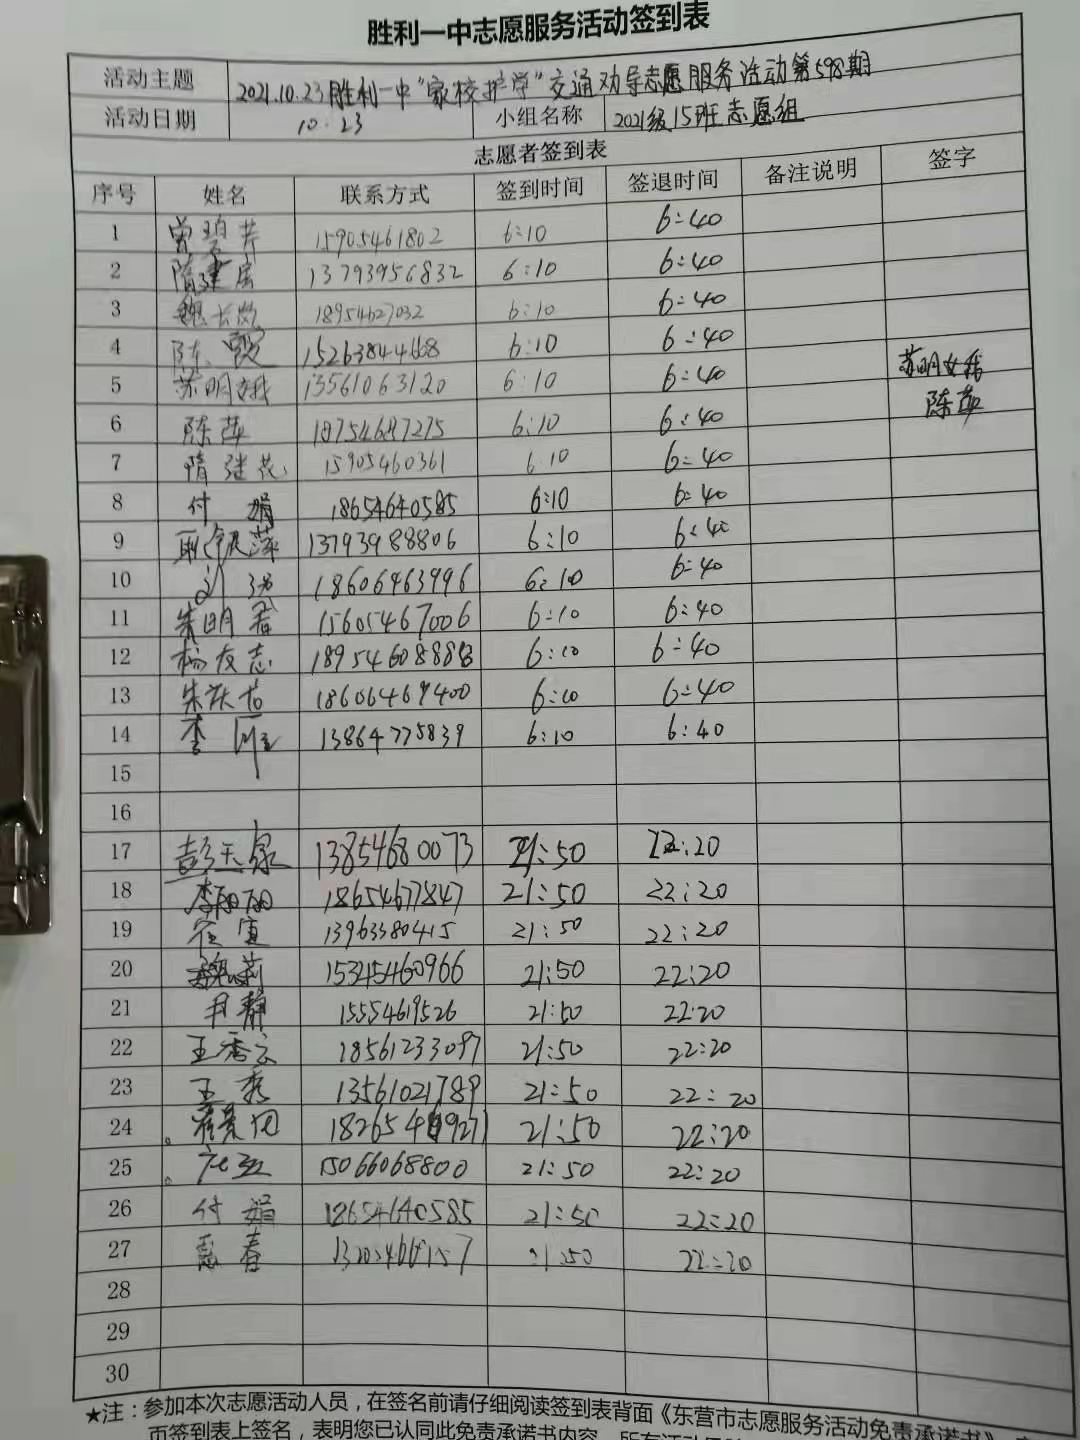 胜利一中志愿服务活动签到表
活动主题 2021.10.23胜利一中"家校护学"交通劝导志愿服务活动第598期
活动日期 10.23 小组名称 2021级15班志愿组
志愿者签到表
序号 姓名 联系方式 签到时间 签退时间 备注说明 签字
1 曾碧芹 15905461802 6:10 6:40
2 隋建房 13793956832 6:10 6:40
3 魏长岚 18954627032 6:10 6:40
4 陈霞 15263844668 6:10 6:40
5 苏明娥 13561063120 6:10 6:40 苏明娥
6 陈萍 18754687275 6:10 6:40 陈萍
7 隋继花 15905460361 6 10 6:40
8 付娟 18654640585 6:10 6:40
9 耿银萍 13793988806 6:10 6:40
10 刘 18606463996 6:10 6:40
11 朱明春 15605467006 6:10 6:40
12 杨友志 1895460888 6:10 6:40
13 朱 18606467400 6:10 6:40
14 李 13864775839 6:10 6:40
15
16
17 彭玉泉 13854680073 21:50 22:20
18 李丽丽 18654677847 21:50 22:20
19 13963380415 21:50 22:20
20 魏莉 15345460966 21:50 22:20
21 尹静 15554619526 21:50 22:20
22 王秀云 18561233097 21:50 22:20
23 王秀 13561021789 21:50 22:20
24 21:50 22:20
25 15066068800 21:50 22:20
26 付娟 18654640585 21:50 22:20
27 惠春 :50 22:20
28
29
30
★注：参加本次志愿活动人员，在签名前请仔细阅读签到表背面《东营市志愿服务活动免责承诺书》，
页签到表上签名，表明您已认同此免责承诺书内容。所有活动